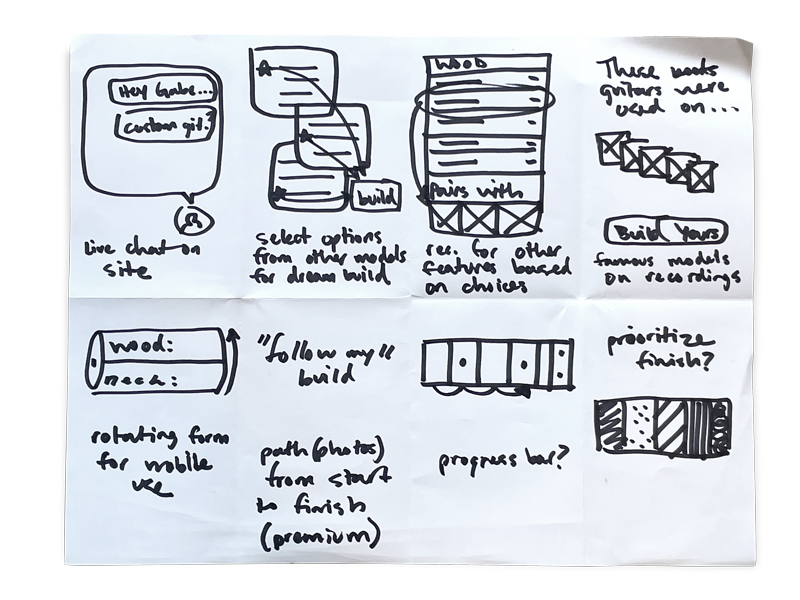 Hey Gabe...
custom git.?
Live chat on
site
build
select options
from other models
for dream build
WOOD
pairs with
rec. for other
features based
on choices
These
guitars were
used on...
Build Yours
famous models
on recordings
wood:
neck:
rotating form
for mobile
use
"follow my"
build
path (photos)
from start
to finish
(premium)
progress bar?
prioritize
finish?